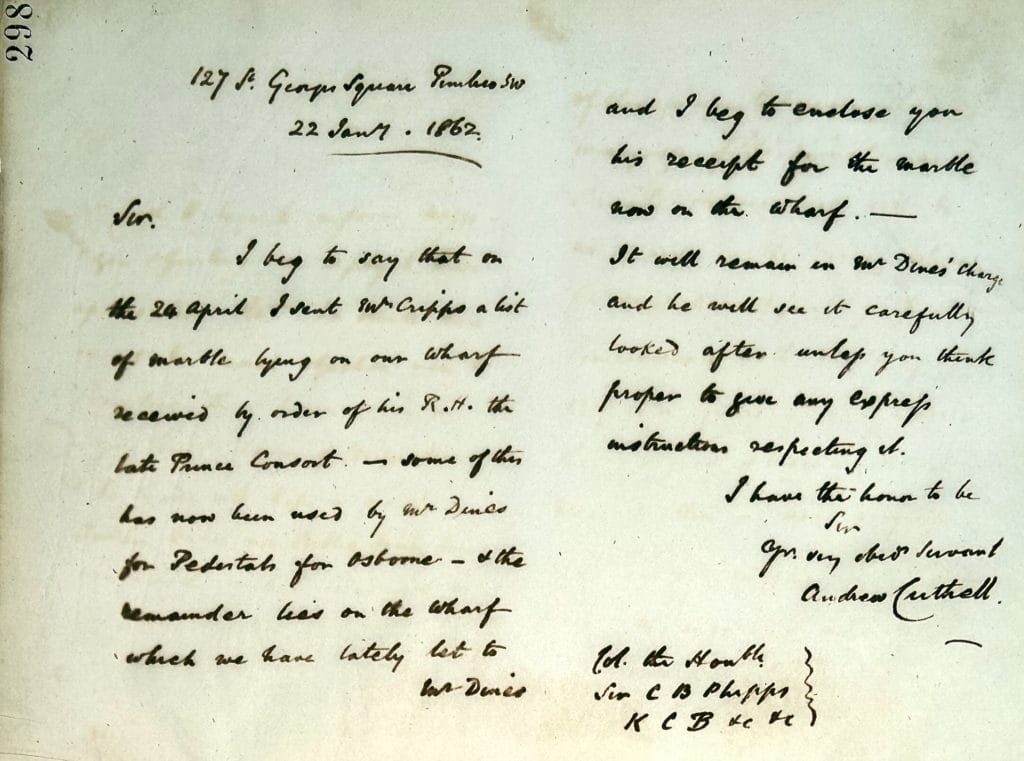 298
127 St. Georges Square Pimlico SW
22 Jany. 1862.
Sir.
I beg to say that on
the 24 April I sent Mr Cripps a list
of marble lying on our Wharf
received by order of his R.H. the
late Prince Consort. — some of this
has now been used by Mr Dines
for Pedestals for Osborne — & the
remainder lies on the Wharf
which we have lately let to
Mr Dines
and I beg to enclose you
his receipt for the marble
now on the Wharf. —
It will remain in Mr Dines' charge
and he will see it carefully
looked after unless you think
proper to give any express
instructions respecting it.
I have the honor to be
Sir
Yr. very obedt Servant
Andrew Cuthell.
Col. the Honble
Sir C B Phipps
K C B &c &c